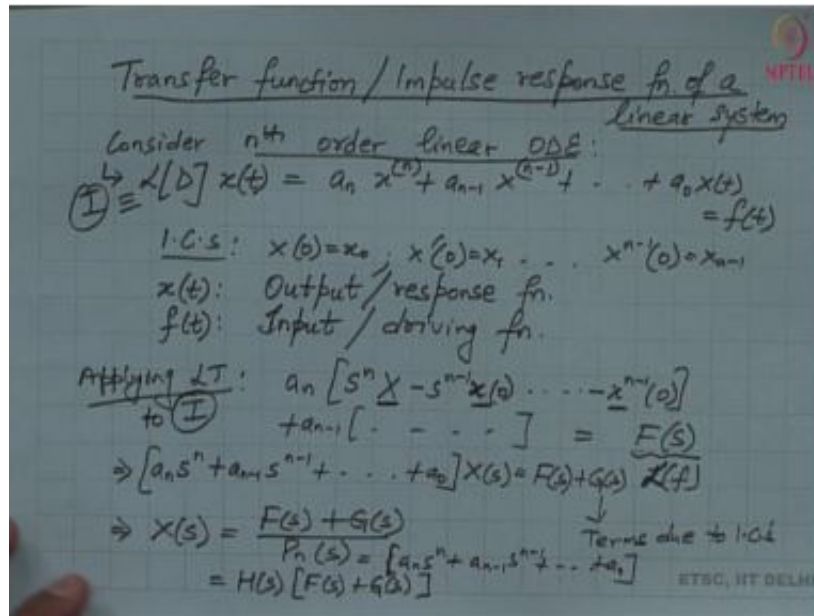 NPTEL
Transfer function / Impulse response fn. of a
linear system
Consider nth order linear ODE:
↳ L[D] x(t) = aₙ x⁽ⁿ⁾ + aₙ₋₁ x⁽ⁿ⁻¹⁾ + . . + a₀ x(t)
Ⓘ ≡ = f(t)
I.C.s: x(0)=x₀ ; x'(0)=x₁ . . . xⁿ⁻¹(0)=xₙ₋₁
x(t): Output / response fn.
f(t): Input / driving fn.
Applying LT: aₙ [sⁿ X - sⁿ⁻¹ x(0) . . . . - xⁿ⁻¹(0)]
to Ⓘ + aₙ₋₁ [ . - - . ] = F(s)
⇒ [aₙsⁿ + aₙ₋₁sⁿ⁻¹ + . . . + a₀] X(s) = F(s) + G(s) L(f)
↓
⇒ X(s) = F(s) + G(s) Terms due to I.C.s
Pₙ(s) = [aₙsⁿ + aₙ₋₁sⁿ⁻¹ + . . + a₀]
= H(s) [F(s) + G(s)]
ETSC, IIT DELHI